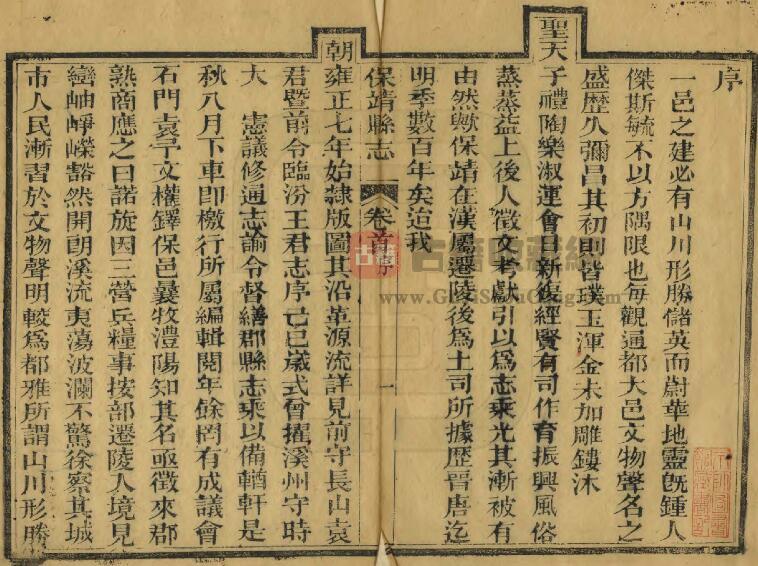 序
一邑之建必有山川形勝儲英而蔚華地靈既鍾人
傑斯毓不以方隅限也每觀通都大邑文物聲名之
盛歷久彌昌其初則皆璞玉渾金未加雕鏤沐
聖天子禮陶樂淑運會日新復經賢有司作育振興風俗
蒸蒸益上後人徵文考獻引以爲志乘光其漸被有
由然歟保靖在漢屬遷陵後爲土司所據歷晉唐迄
明季數百年矣迨我
保靖縣志
卷首
序
一
朝雍正七年始隸版圖其沿革源流詳見前守長山袁
君暨前令臨汾王君志序己巳歲式會擢溪州守時
大 憲議修通志諭令督繕郡縣志乘以備輶軒是
秋八月下車即檄行所屬編輯閱年餘罔有成議會
石門袁子文權鐸保邑曩牧澧陽知其名亟徵來郡
熟商應之曰諾旋因三營兵糧事按部遷陵入境見
巒岫崢嶸豁然開朗溪流夷蕩波瀾不驚徐察其城
市人民漸習於文物聲明較爲都雅所謂山川形勝
古籍
www.GuJiShuCang.com